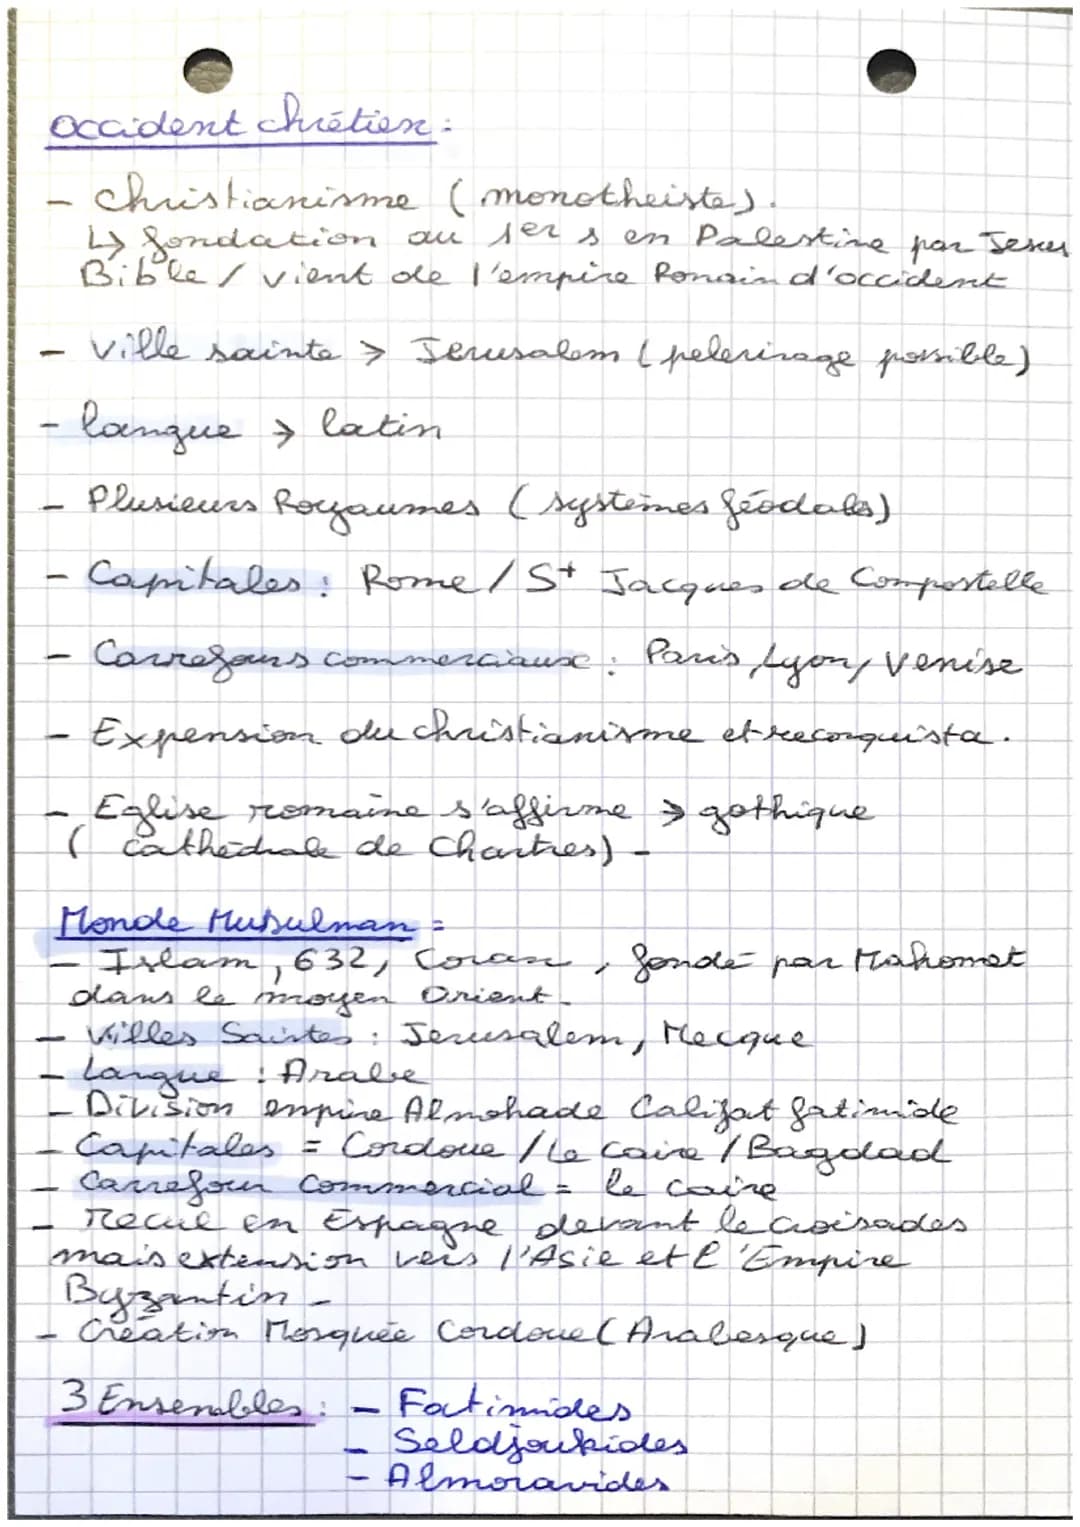 Occident chrétien :
- Christianisme ( monotheiste).
↳ fondation au 1er s en Palestine par Jesus
Bible / vient de l'empire Romain d'occident
- Ville sainte → Jerusalem ( pelerinage possible)
- langue → latin
- Plusieurs Royaumes ( systèmes féodals)
- Capitales : Rome / St Jacques de Compostelle
- Carrefours commerciaux : Paris, Lyon, Venise
- Expension du christianisme et reconquista.
- Eglise romaine s'affirme → gothique
( cathédrale de Chartres) -
Monde Musulman =
- Islam, 632, Coran, fondé par Mahomet
dans le moyen Orient.
- Villes Saintes : Jerusalem, Mecque
- Langue : Arabe
- Division empire Almohade Califat fatimide
- Capitales = Cordoue / Le Caire / Bagdad
- Carrefour commercial = le caire
- Recul en Espagne devant le croisades
mais extension vers l'Asie et l'Empire
Byzantin -
- Création Mosquée Cordoue ( Arabesque)
3 Ensembles : - Fatimides
- Seldjoukides
- Almoravides